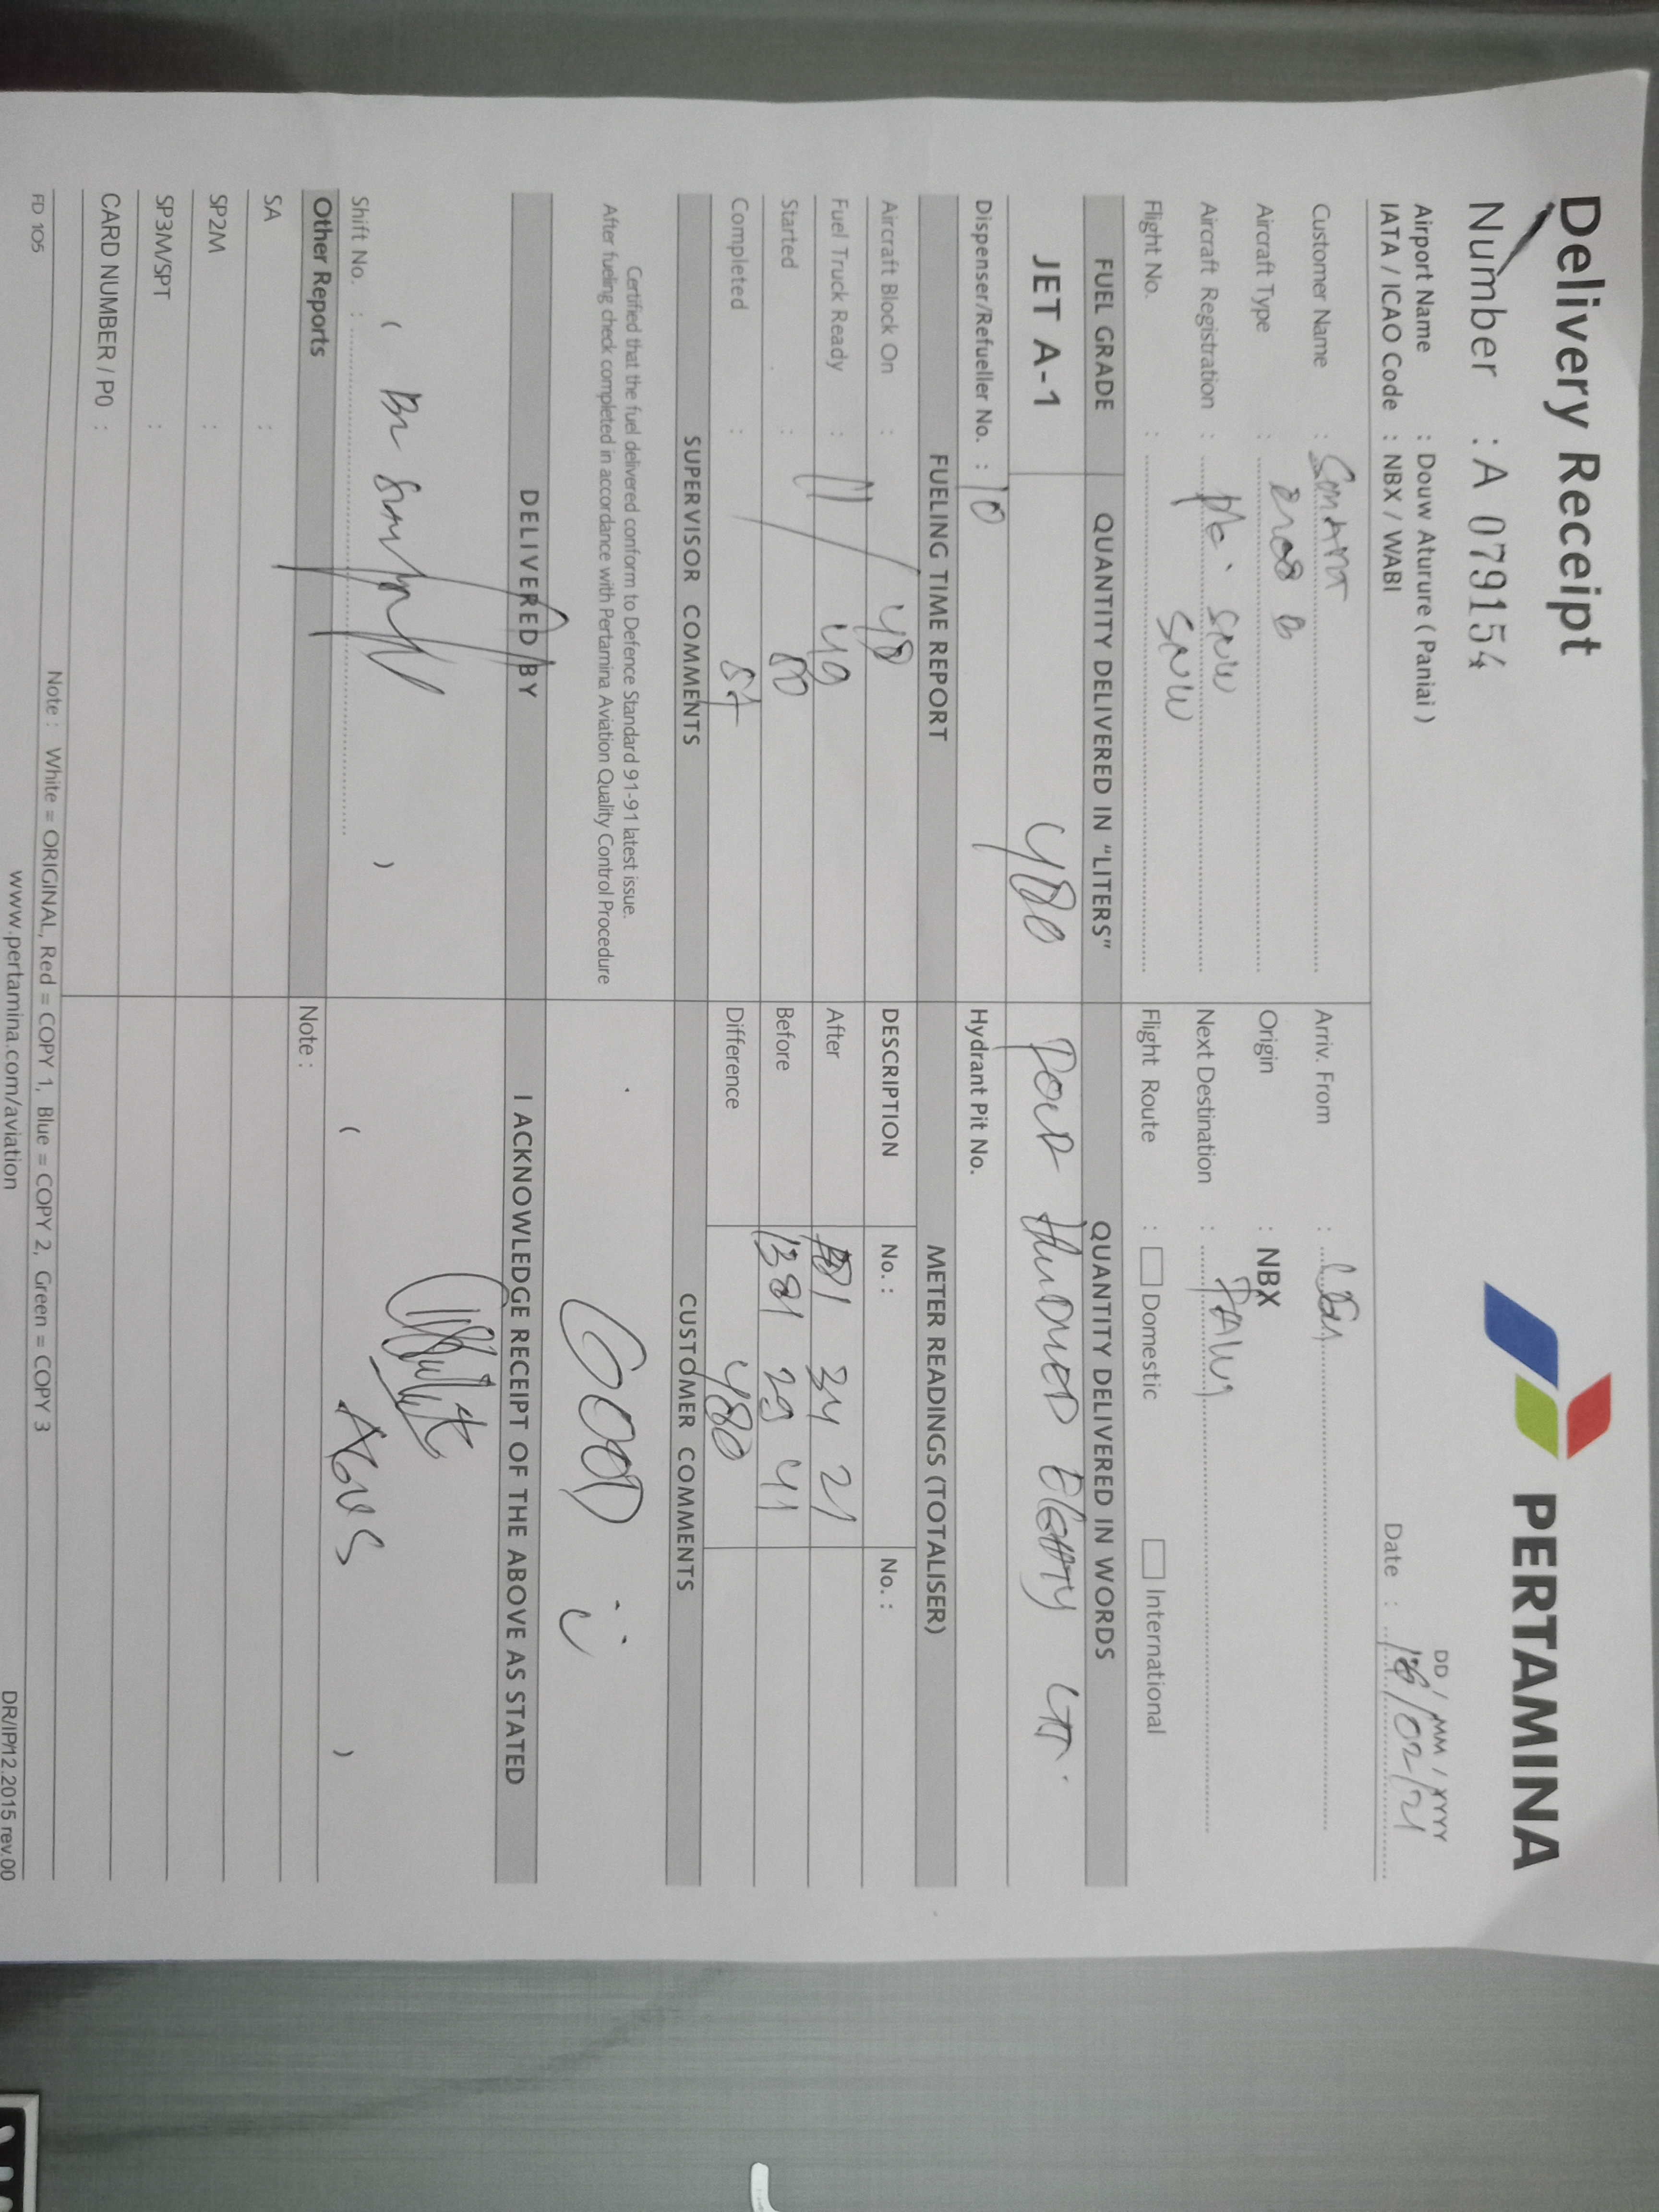 Delivery Receipt
PERTAMINA
Number : A 079154
DD / MM / YYYY
Airport Name : Douw Aturure ( Paniai )
IATA / ICAO Code : NBX / WABI
Date : /02/21
Customer Name :
Arriv. From :
Aircraft Type : B
Origin : NBX
Aircraft Registration : PK. SNW
Next Destination :
Flight No. : SNW
Flight Route : Domestic International
FUEL GRADE
QUANTITY DELIVERED IN "LITERS"
QUANTITY DELIVERED IN WORDS
JET A-1
480
FOUR HUNDRED EIGHTY LTR.
Dispenser/Refueller No. : 10
Hydrant Pit No.
FUELING TIME REPORT
METER READINGS (TOTALISER)
Aircraft Block On : 48
DESCRIPTION
No. :
No. :
Fuel Truck Ready : 11 49
After 34 21
Started : 50
Before 1381 29 41
Completed : 54
Difference 480
SUPERVISOR COMMENTS
CUSTOMER COMMENTS
Certified that the fuel delivered conform to Defence Standard 91-91 latest issue.
After fueling check completed in accordance with Pertamina Aviation Quality Control Procedure
GOOD
DELIVERED BY
I ACKNOWLEDGE RECEIPT OF THE ABOVE AS STATED
( )
Shift No. :
( AGUS )
Other Reports
Note :
SA :
SP2M :
SP3M/SPT :
CARD NUMBER / P0 :
Note : White = ORIGINAL, Red = COPY 1, Blue = COPY 2, Green = COPY 3
FD 105
www.pertamina.com/aviation
DR/IP/12.2015 rev.00